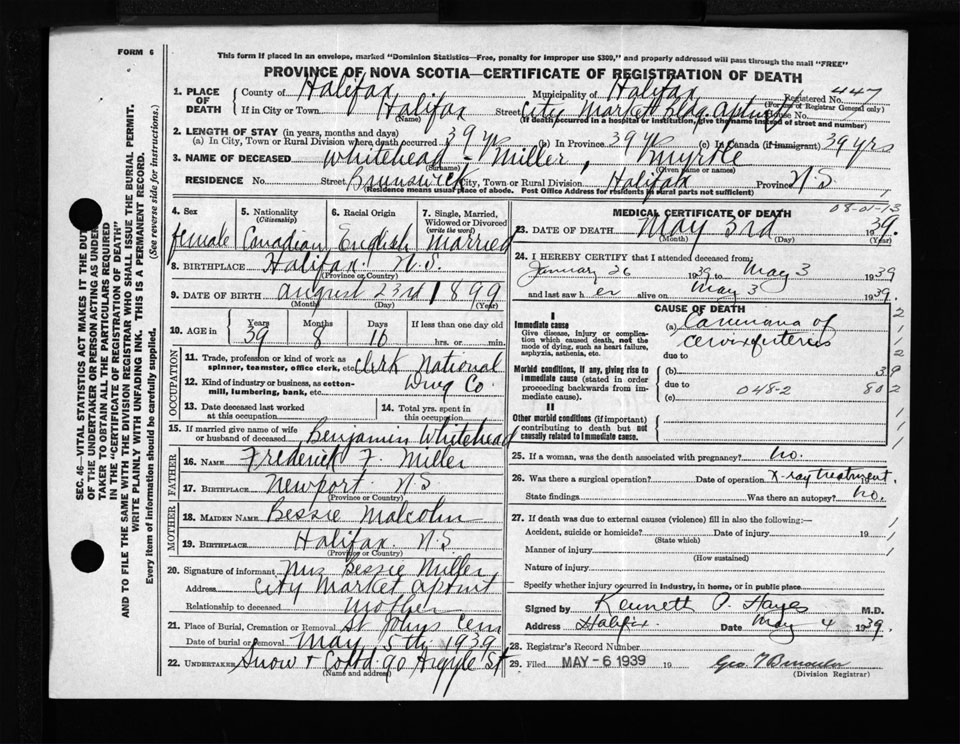 FORM 6
This form if placed in an envelope, marked "Dominion Statistics—Free, penalty for improper use $300," and properly addressed will pass through the mail "FREE"
PROVINCE OF NOVA SCOTIA—CERTIFICATE OF REGISTRATION OF DEATH
1. PLACE OF DEATH County of Halifax Municipality of Halifax Registered No. 447
(For use of Registrar General only)
If in City or Town Halifax Street City Market Bldg. House No.
(Name) (If death occurred in a hospital or institution, give the name instead of street and number)
2. LENGTH OF STAY (in years, months and days)
(a) In City, Town or Rural Division where death occurred 39 yrs (b) In Province 39 yrs (c) In Canada (if immigrant) 39 yrs
3. NAME OF DECEASED Whitehead - Miller, Myrtle
(Surname) (Given name or names)
RESIDENCE No. Street Brunswick City, Town or Rural Division Halifax Province N.S.
(Residence means usual place of abode. Post Office Address for Rural parts not sufficient)
4. Sex female
5. Nationality (Citizenship) Canadian
6. Racial Origin English
7. Single, Married, Widowed or Divorced (write the word) Married
8. BIRTHPLACE Halifax. N.S.
(Province or Country)
9. DATE OF BIRTH August 23rd 1899
(Month) (Day) (Year)
10. AGE in Years 39 Months 8 Days 16 If less than one day old hrs. or min.
OCCUPATION
11. Trade, profession or kind of work as spinner, teamster, office clerk, etc. Clerk National
12. Kind of industry or business, as cotton-mill, lumbering, bank, etc. Drug Co.
13. Date deceased last worked at this occupation
14. Total yrs. spent in this occupation
15. If married give name of wife or husband of deceased Benjamin Whitehead
FATHER
16. NAME Frederick F. Miller
17. BIRTHPLACE Newport. N.S.
(Province or Country)
MOTHER
18. MAIDEN NAME Bessie Malcolm
19. BIRTHPLACE Halifax. N.S
(Province or Country)
20. Signature of informant Mrs Bessie Miller
Address City Market
Relationship to deceased Mother
21. Place of Burial, Cremation or Removal St Johns Cem
Date of burial or removal May 5th 1939
22. UNDERTAKER Snow + Co Ltd 90 Argyle St
(Name and address)
08-01-13
MEDICAL CERTIFICATE OF DEATH
23. DATE OF DEATH May 3rd 1939.
(Month) (Day) (Year)
24. I HEREBY CERTIFY that I attended deceased from:
January 26 1939 to May 3 1939
and last saw her alive on May 3 1939.
CAUSE OF DEATH
I
Immediate cause
Give disease, injury or complication which caused death, not the mode of dying, such as heart failure, asphyxia, asthenia, etc.
(a) Carcinoma of cervix uterus
due to
Morbid conditions, if any, giving rise to immediate cause (stated in order proceeding backwards from immediate cause).
(b) 39
due to 048-2 802
(c)
II
Other morbid conditions (if important) contributing to death but not causally related to immediate cause.
25. If a woman, was the death associated with pregnancy? No.
26. Was there a surgical operation? Date of operation. X-ray treatment.
State findings. Was there an autopsy? No.
27. If death was due to external causes (violence) fill in also the following:—
Accident, suicide or homicide? Date of injury 19
(State which)
Manner of injury
(How sustained)
Nature of injury
Specify whether injury occurred in industry, in home, or in public place
Signed by Kenneth P. Hayes M.D.
Address Halifax. Date May 4 1939.
28. Registrar's Record Number
29. Filed MAY - 6 1939 19 Geo. T
(Division Registrar)
SEC. 46—VITAL STATISTICS ACT MAKES IT THE DUTY
OF THE UNDERTAKER OR PERSON ACTING AS UNDER-
TAKER TO OBTAIN ALL THE PARTICULARS REQUIRED
IN THE "CERTIFICATE OF REGISTRATION OF DEATH"
AND TO FILE THE SAME WITH THE DIVISION REGISTRAR WHO SHALL ISSUE THE BURIAL PERMIT.
WRITE PLAINLY WITH UNFADING INK. THIS IS A PERMANENT RECORD.
Every item of information should be carefully supplied. (See reverse side for instructions.)